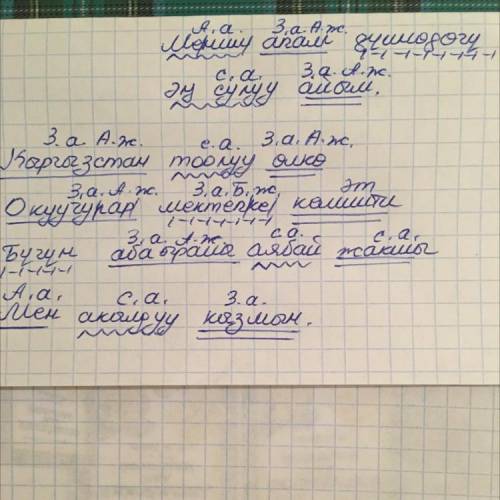 А.а. З.а.А.ж.
Менин апам дүйнөдөгү
с.а. З.а.А.ж.
эң сулуу айым.
З.а А.ж. с.а. З.а, А.ж.
Кыргызстан тоолуу өлкө
З.а. А.ж. З.а.Б.ж. эт
Окуучулар мектепке келишти
З.а А.ж с.а. с.а.
Бүгүн аба ырайы аябай жакшы
А.а. с.а. З.а.
Мен акылдуу кызмын.